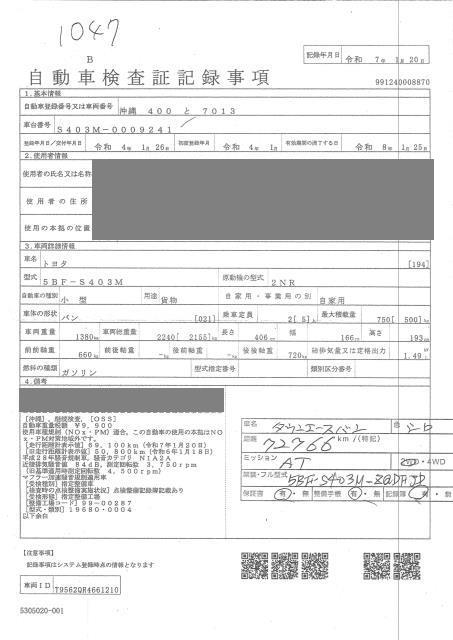 1047
B
記録年月日 令和 7年 1月 20日
自動車検査証記録事項
991240008870
1.基本情報
自動車登録番号又は車両番号 沖縄 400 と 7013
車台番号 S403M-0009241
登録年月日/交付年月日 令和 4年 1月 26日 初度登録年月 令和 4年 1月 有効期間の満了する日 令和 8年 1月 25日
2.使用者情報
使用者の氏名又は名称
使用者の住所
使用の本拠の位置
3.車両詳細情報
車名 トヨタ [194]
型式 5BF-S403M 原動機の型式 2NR
自動車の種別 小型 用途 貨物 自家用・事業用の別 自家用
車体の形状 バン [021] 乗車定員 2[ 5]人 最大積載量 750[ 500]kg
車両重量 1380kg 車両総重量 2240[ 2155]kg 長さ 406cm 幅 166cm 高さ 193cm
前前軸重 660kg 前後軸重 -kg 後前軸重 -kg 後後軸重 720kg 総排気量又は定格出力 1.49 L
燃料の種類 ガソリン 型式指定番号 類別区分番号
4.備考
[沖縄],継続検査,[OSS]
自動車重量税額 ¥9,900
使用車種規制(NOx・PM)適合,この自動車の使用の本拠はNOx・PM対策地域外です。
[走行距離計表示値] 69,100km(令和7年1月20日)
[旧走行距離計表示値] 50,800km(令和6年1月18日)
平成28年騒音規制車,騒音カテゴリ N1A2A
近接排気騒音値 84dB,測定回転数 3,750rpm
(旧基準適用時測定回転数 4,500rpm)
マフラー加速騒音規制適用車
[受検種別] 指定整備車
[検査時の点検整備実施状況] 点検整備記録簿記載あり
[受検形態] 指定整備工場
[整備工場コード] 99-00287
[型式・類別] 19680-0004
以下余白
車名 タウンエースバン 色
距離 72766 km/(特記)
ミッション AT 2WD・4WD
架装・フル型式
保証書 有・無 整備手帳 有・無 記録簿 有・無
【注意事項】
記録事項はシステム登録時点の情報となります
車両ID T9562QR4661210
5305020-001